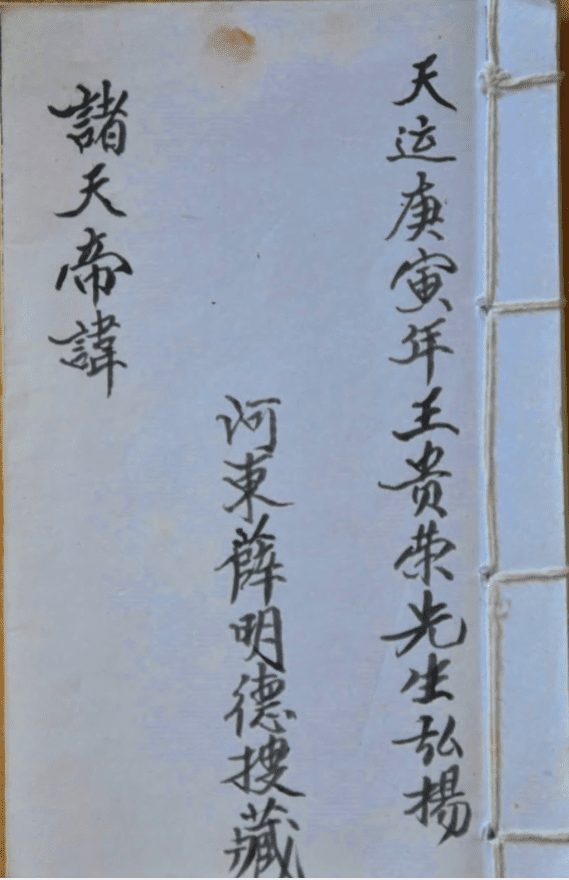 天运庚寅年王贵荣先生弘揚
河東薛明德搜藏
諸天帝諱